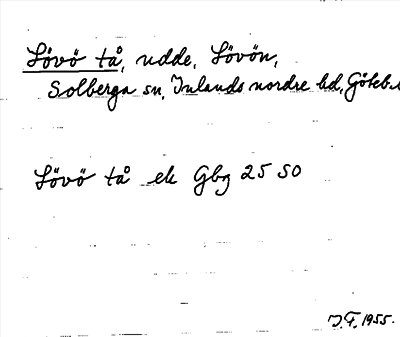 Lövö tå, udde, Lövön,
Solberga sn, Inlands nordre hd, Göteb.
Lövö tå ek Gbg 25 SO
J.F. 1955.